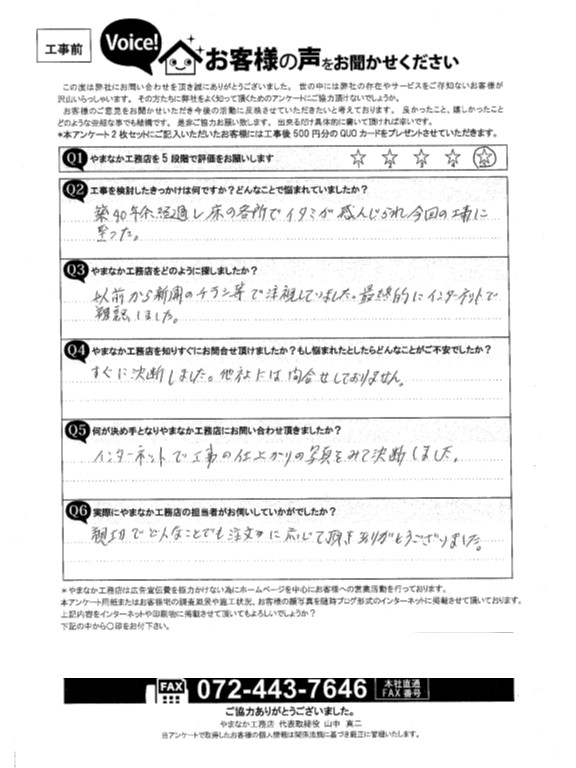 工事前
Voice!
お客様の声をお聞かせください
この度は弊社にお問い合わせを頂き誠にありがとうございました。 世の中には弊社の存在やサービスをご存知ないお客様が
沢山いらっしゃいます。 その方たちに弊社をよく知って頂くためのアンケートにご協力頂けないでしょうか。
お客様のご意見をお聞かせいただき今後の活動に反映させていただきたいと考えております。 良かったこと、嬉しかったこと
どのような些細な事でも結構です。 是非ご協力お願い致します。 出来るだけ具体的に書いて頂ければ幸いです。
*本アンケート2枚セットにご記入いただいたお客様には工事後500円分のQUOカードをプレゼントさせていただきます。
Q1 やまなか工務店を5段階で評価をお願いします
1 2 3 4 5
Q2 工事を検討したきっかけは何ですか？どんなことで悩まれていましたか？
築40年余経過し床の各所でイタミが感んじられ今回の工事に
至った。
Q3 やまなか工務店をどのように探しましたか？
以前から新聞のチラシ等で注視していました。最終的にインターネットで
確認しました。
Q4 やまなか工務店を知りすぐにお問合せ頂けましたか？もし悩まれたとしたらどんなことがご不安でしたか？
すぐに決断しました。他社には問合せしておりません。
Q5 何が決め手となりやまなか工務店にお問い合わせ頂きましたか？
インターネットで工事の仕上がりの写真をみて決断しました。
Q6 実際にやまなか工務店の担当者がお伺いしていかがでしたか？
親切でどんなことでも注文に応じて頂きありがとうございました。
*やまなか工務店は広告宣伝費を極力かけない為にホームページを中心にお客様への営業活動を行っております。
本アンケート用紙またはお客様宅の調査風景や施工状況、お客様の顔写真を随時ブログ形式のインターネットに掲載させて頂いております。
上記内容をインターネットや印刷物に掲載させて頂いてもよろしいでしょうか？
下記の中から○印をお付下さい。
FAX 072-443-7646 本社直通
FAX番号
ご協力ありがとうございました。
やまなか工務店 代表取締役 山中 真二
当アンケートで取得したお客様の個人情報は関係法規に基づき厳正に管理いたします。